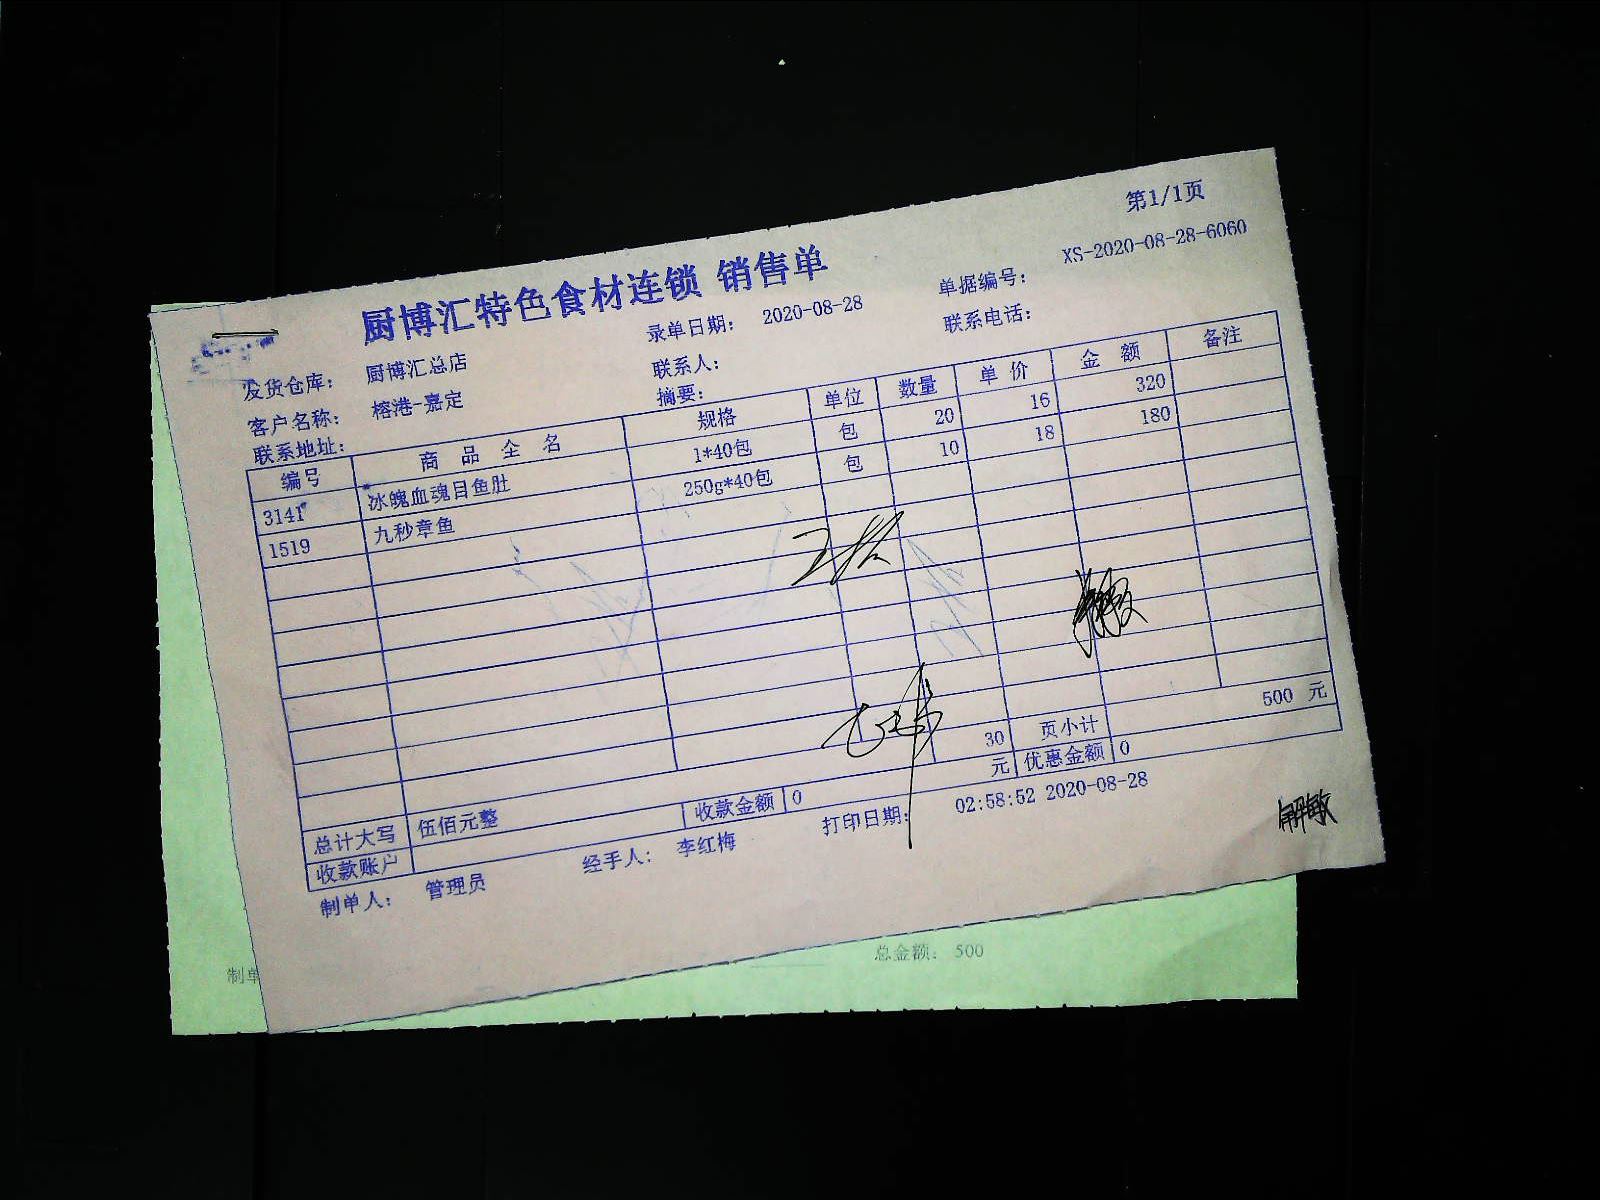 第1/1页
厨博汇特色食材连锁 销售单
录单日期： 2020-08-28 单据编号： XS-2020-08-28-6060
发货仓库： 厨博汇总店 联系人： 联系电话：
客户名称： 榕港-嘉定 摘要：
联系地址：
编号 商 品 全 名 规格 单位 数量 单 价 金 额 备注
3141 冰魄血魂目鱼肚 1*40包 包 20 16 320
1519 九秒章鱼 250g*40包 包 10 18 180
30 页小计 500 元
总计大写 伍佰元整 收款金额 0 元 优惠金额 0
收款账户
制单人： 管理员 经手人： 李红梅 打印日期： 02:58:52 2020-08-28
制单
总金额： 500